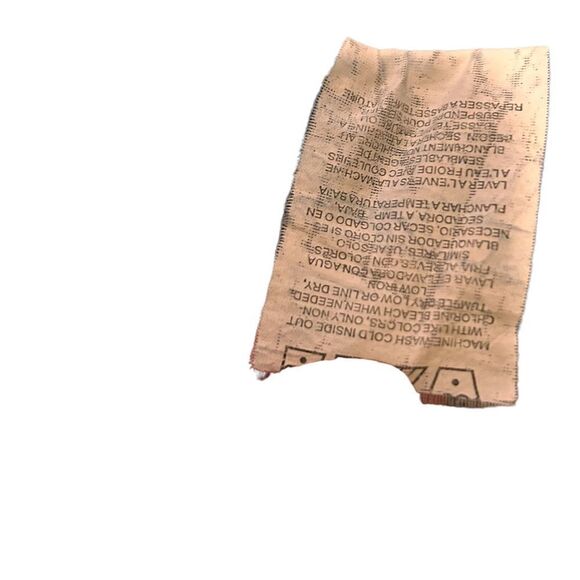 MACHINE WASH COLD INSIDE OUT
WITH LIKE COLORS, ONLY NON-
CHLORINE BLEACH WHEN NEEDED.
TUMBLE DRY LOW OR LINE DRY,
LOW IRON
LAVAR EN LAVADORA CON AGUA
FRIA AL REVES, CON COLORES
SIMILARES, USE SOLO
BLANQUEADOR SIN CLORO SI ES
NECESARIO, SECAR COLGADO O EN
SECADORA A TEMP. BAJA,
PLANCHAR A TEMPERATURA BAJA
LAVER A L'ENVERS A LA MACHINE
A L'EAU FROIDE AVEC COULEURS
SEMBLABLES, AGENT DE
BLANCHIMENT NON CHLORE AU
BESOIN. SECHER A LA MACHINE A
BASSE TEMPERATURE OU
SUSPENDRE POUR SECHER.
REPASSER A BASSE TEMPERATURE